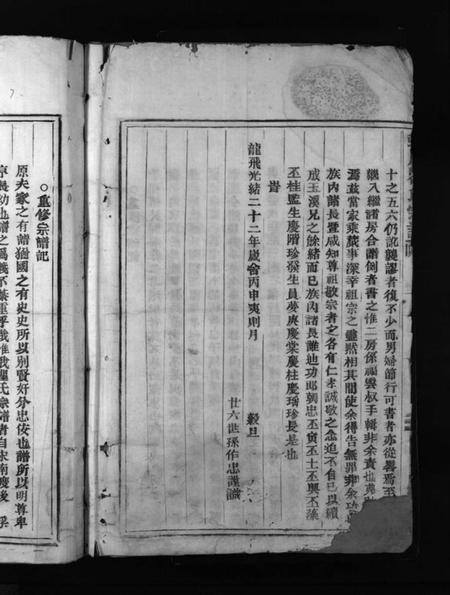 十之五六仍訛襲謬者復不少而男婦節行可書者亦從畧焉至
繼入繼諸房合譜倒者書之惟二房係
叔手輯非余責也
為茲當家乘蕆事深幸祖宗之靈默相其間使余得告無罪非余功
族內諸長暨咸知尊祖敬宗者之各有仁孝誠敬之念迫不自已以續
成玉溪兄之餘緒而已族內諸長難迪功郎朝忠丕寅丕士丕興丕藻
丕桂監生慶階珍發生員夢庚慶棠慶柱慶瑞珍長是也
旹
龍飛光緒二十二年歲會丙申夷則月 穀旦
廿六世孫作忠謹識
○重修宗譜記
原夫家之有譜猶國之有史史所以別賢奸分忠佞也譜所以明尊卑
序長幼也譜之為義不綦重乎我惟我瞿氏宗譜者自宋南慶後